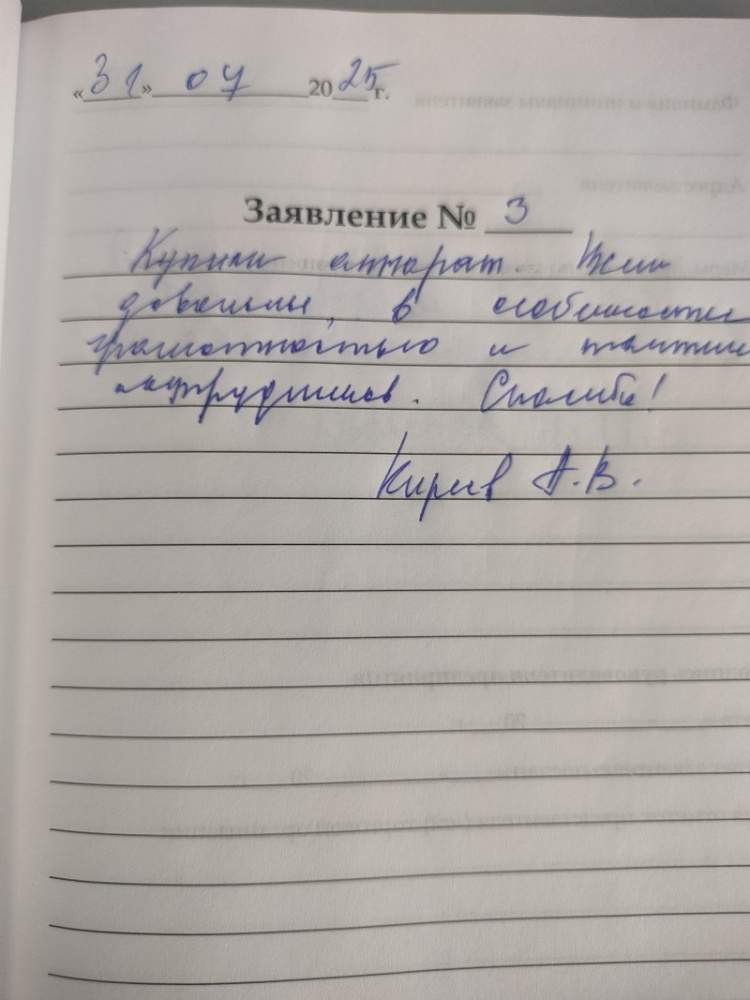 «31» 07 2025 г.
Заявление № 3
Купили аппарат. Всем
довольны, в особенности
грамотностью и
сотрудников. Спасибо!
Киреев А.В.